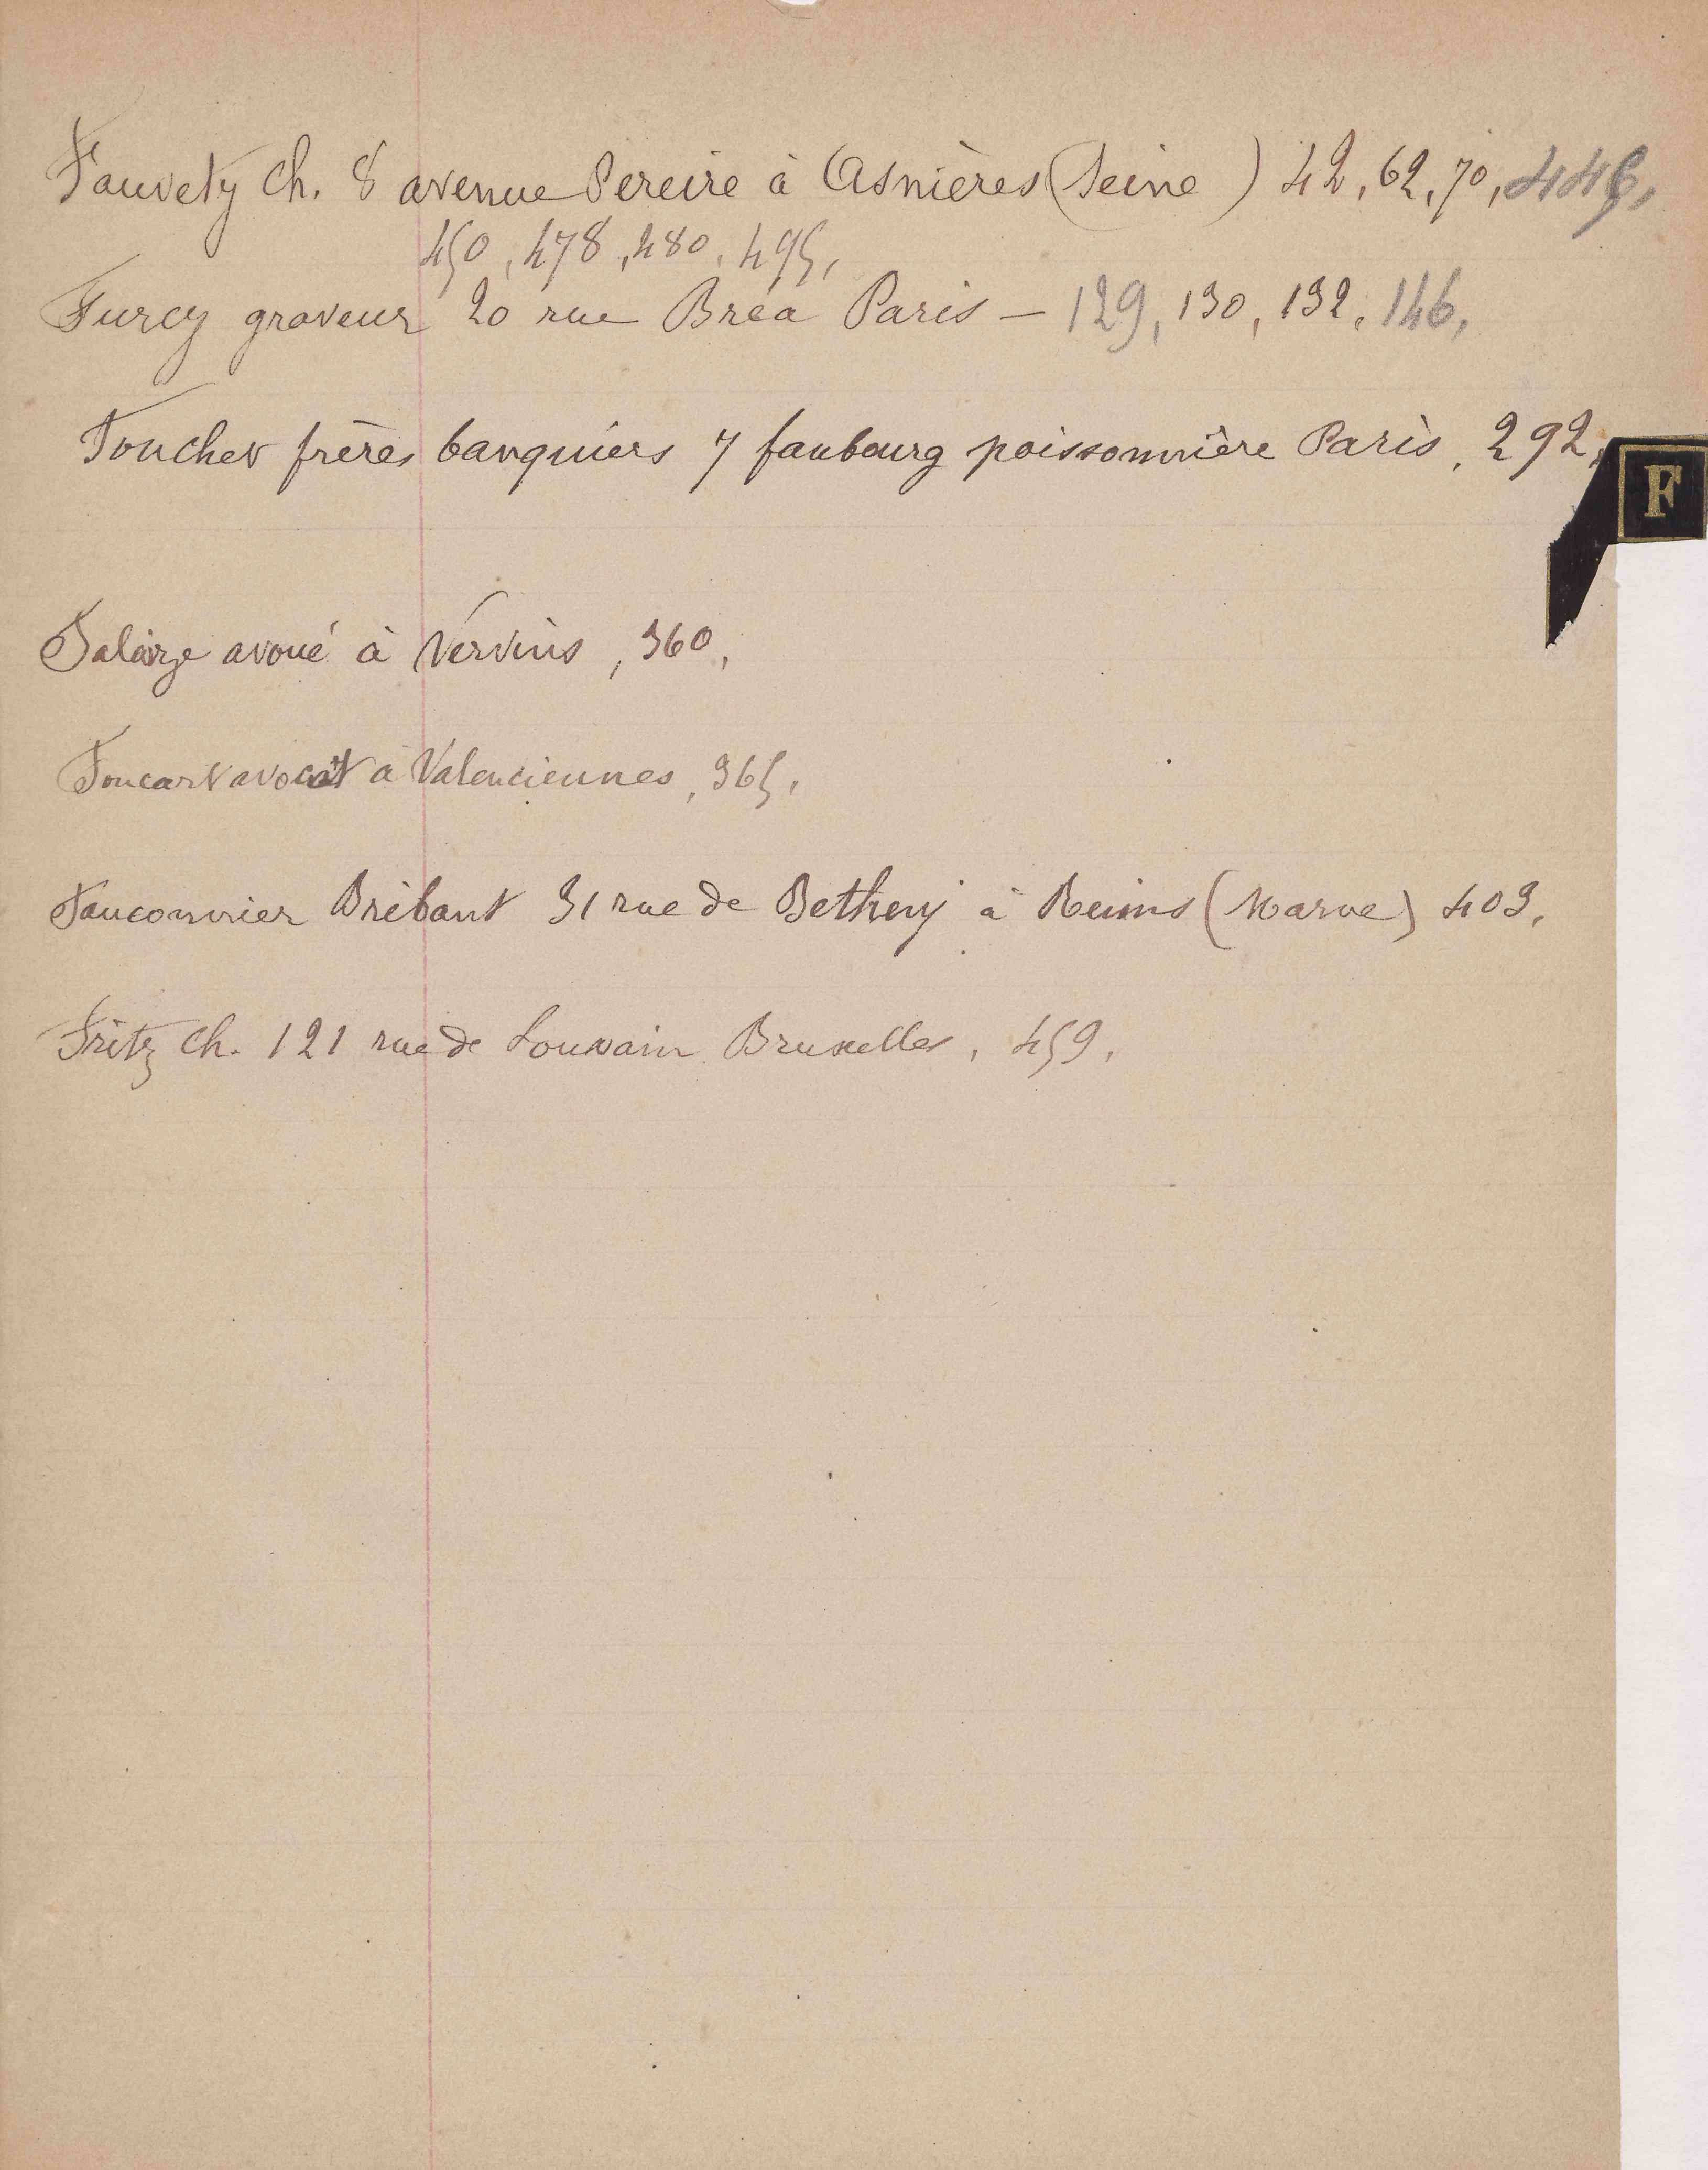 Fauvety Ch. 8 avenue Pereire à Asnières (Seine) 42, 62, 70, 446,
450, 478, 480, 495,
Furcy graveur 20 rue Bréa Paris — 129, 130, 132, 146,
Foucher frères banquiers 7 faubourg poissonnière Paris, 292,
F
avoué à Vervins, 360,
Foucart avocat à Valenciennes, 365,
Fauconnier Brébant 31 rue de Betheny à Reims (Marne) 403,
Fritz Ch. 121 rue de Louvain Bruxelles, 459,